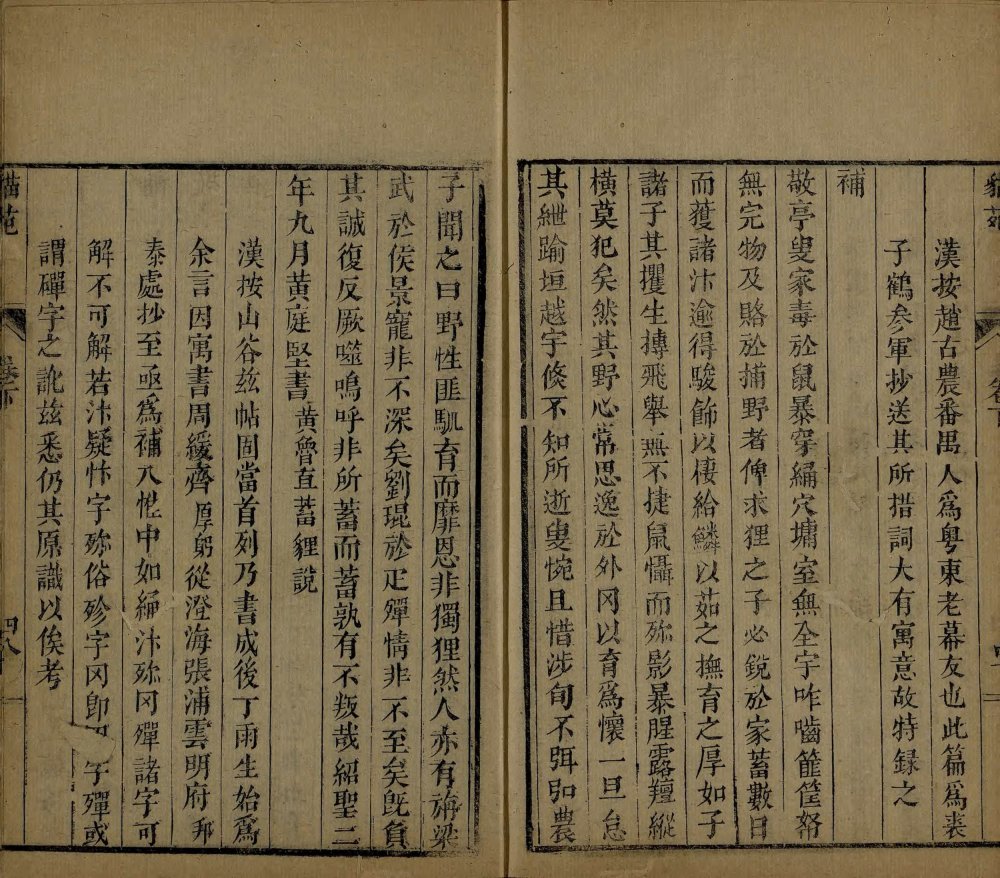 漢按趙古農番禺人為粵東老幕友也此篇為裘
子鶴參軍抄送其所措詞大有寓意故特録之
補
敬亭叟家毒於鼠暴穿䋲穴墉室無全宇咋嚙篚筐帑
無完物及賂於捕野者俾求狸之子必銳於家蓄數日
而獲諸汴逾得駿飾以棲給鱗以茹之撫育之厚如子
諸子其攫生摶飛舉無不捷鼠懾而殄影暴腥露羶縱
橫莫犯矣然其野心常思逸於外冈以育為懷一旦怠
其紲踰垣越宇倏不知所逝叟惋且惜涉旬不弭𠃔農
子聞之曰野性匪馴育而靡恩非獨狸然人亦有旃梁
武於侯景寵非不深矣劉琨於疋殫情非不至矣旣負
其誠復反厥噬嗚呼非所蓄而蓄孰有不叛哉紹聖二
年九月黃庭堅書黃魯直蓄貍說
漢按山谷茲帖固當首列乃書成後丁雨生始為
余言因寓書周緩齊厚躬從澄海張浦雲明府邦
泰處抄至亟為補入惟中如䋲汴殄冈殫諸字可
解不可解若汴疑忭字殄俗殄字冈卽字殫或
謂磾字之訛茲悉仍其原識以俟考
貓苑
卷下